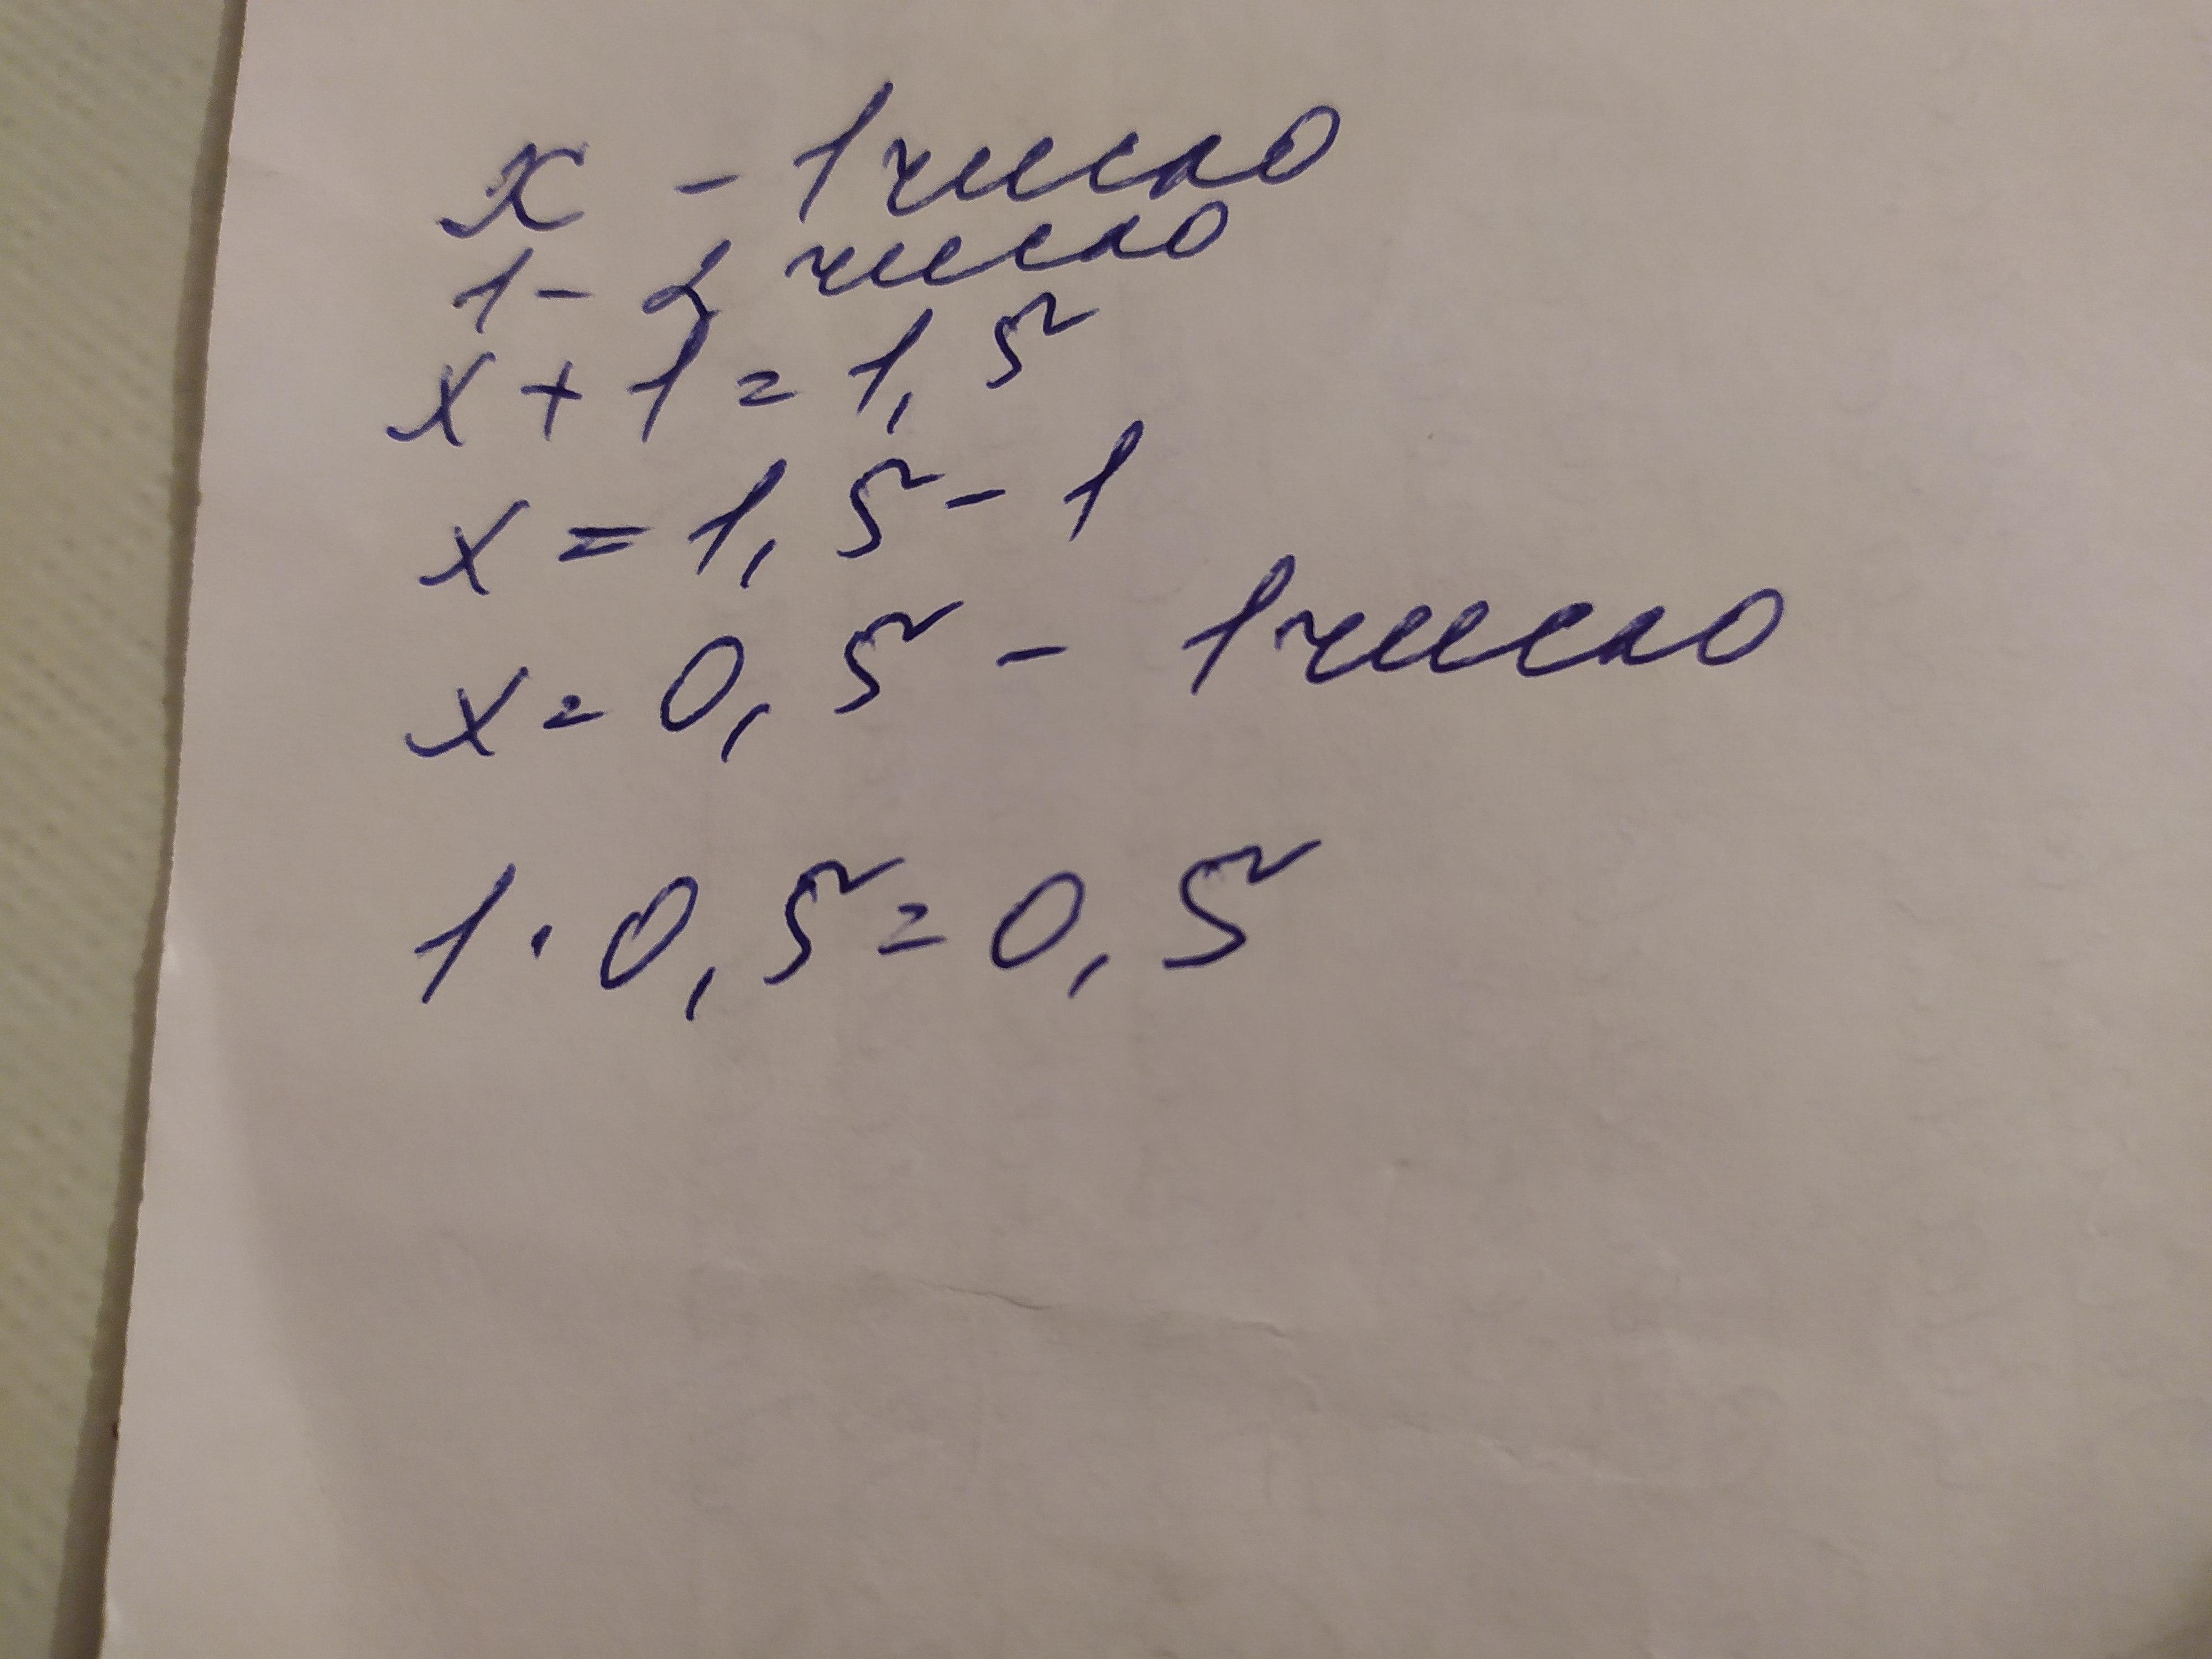 x - 1 число
1 - 2 число
x + 1 = 1,5
x = 1,5 - 1
x = 0,5 - 1 число
1 · 0,5 = 0,5